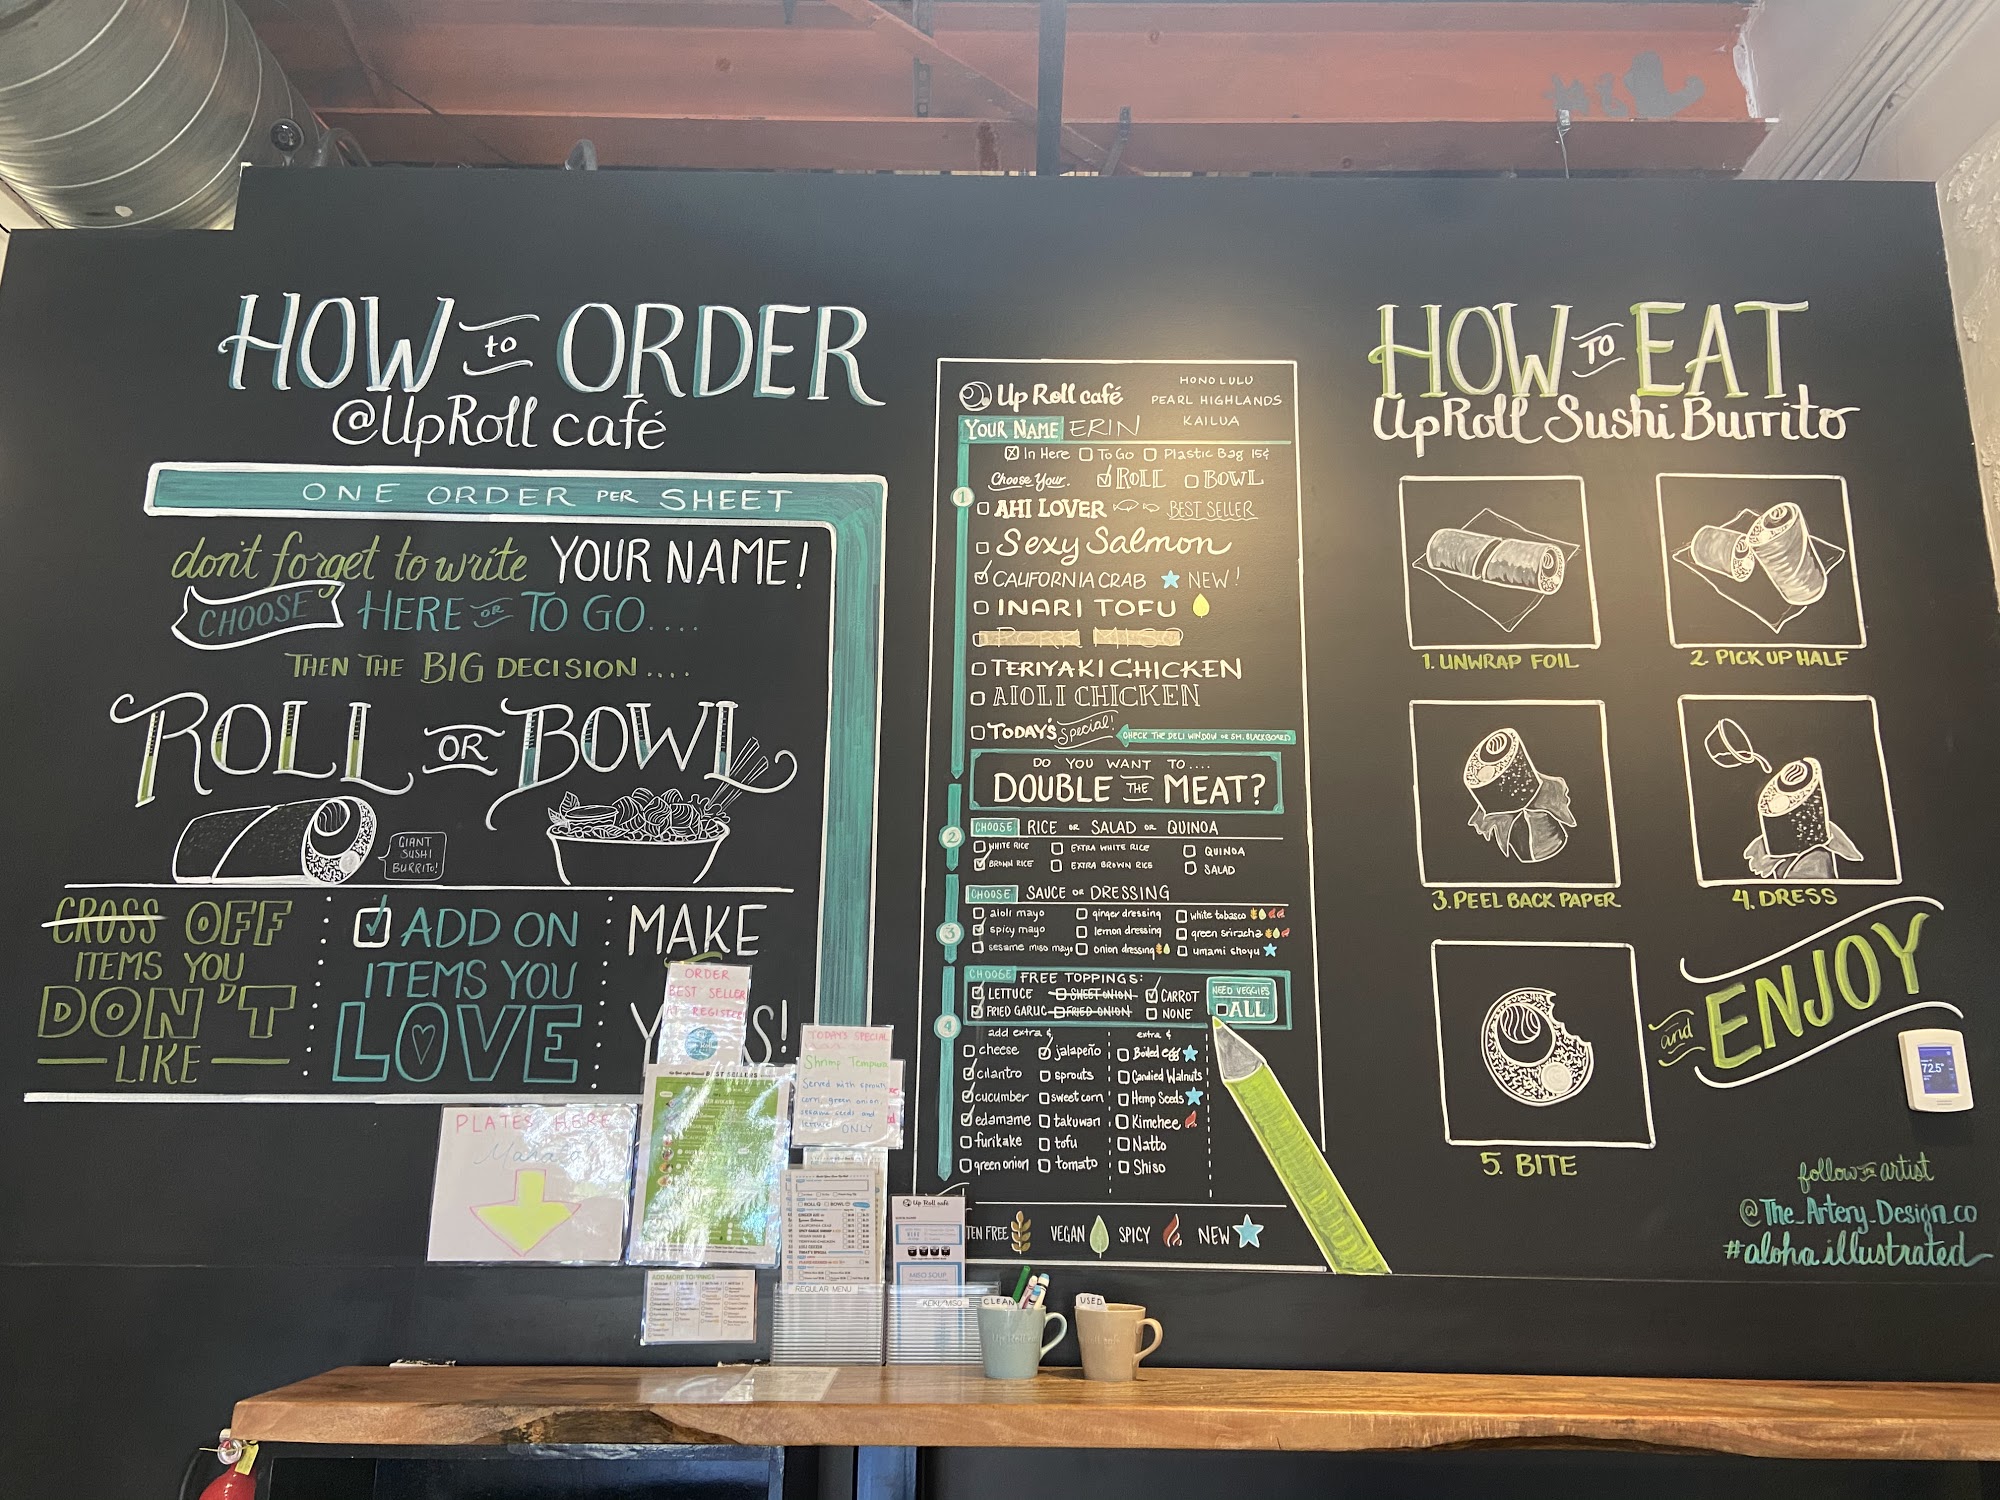 HOW to ORDER
@UpRoll café
ONE ORDER PER SHEET
don't forget to write YOUR NAME!
CHOOSE HERE OR TO GO....
THEN THE BIG DECISION....
ROLL OR BOWL
GIANT
SUSHI
BURRITO!
CROSS OFF
ITEMS YOU
DON'T
LIKE
ADD ON
ITEMS YOU
LOVE
MAKE
S!
ORDER
BEST SELLER
AT REGISTER
BEST SELLERS
TODAY'S SPECIAL
Shrimp Tempura
Served with sprouts
corn, green onion
sesame seeds and
ONLY
PLATES HERE
Mahalo
ADD MORE TOPPINGS
REGULAR MENU
Up Roll café
MISO SOUP
KEIKI/MISO
CLEAN
USED
Up Roll café
HONOLULU
PEARL HIGHLANDS
KAILUA
YOUR NAME ERIN
In Here To Go Plastic Bag 15¢
Choose Your. ROLL BOWL
1
AHI LOVER BEST SELLER
Sexy Salmon
CALIFORNIA CRAB NEW!
INARI TOFU
TERIYAKI CHICKEN
AIOLI CHICKEN
TODAY'S Special! CHECK THE DELI WINDOW OR SM. BLACKBOARD
DO YOU WANT TO....
DOUBLE THE MEAT?
2
CHOOSE RICE OR SALAD OR QUINOA
WHITE RICE EXTRA WHITE RICE QUINOA
BROWN RICE EXTRA BROWN RICE SALAD
3
CHOOSE SAUCE OR DRESSING
aioli mayo ginger dressing white tobasco
spicy mayo lemon dressing green sriracha
sesame miso mayo onion dressing umami shoyu
4
CHOOSE FREE TOPPINGS: NEED VEGGIES
LETTUCE SWEET ONION CARROT ALL
FRIED GARLIC FRIED ONION NONE
add extra ¢ extra ¢
cheese jalapeño Boiled egg
cilantro sprouts Candied Walnuts
cucumber sweet corn Hemp Seeds
edamame takuwan Kimchee
furikake tofu Natto
green onion tomato Shiso
TEN FREE VEGAN SPICY NEW
HOW TO EAT
UpRoll Sushi Burrito
1. UNWRAP FOIL
2. PICK UP HALF
3. PEEL BACK PAPER
4. DRESS
5. BITE
and ENJOY
72.5°
follow the artist
@The_Artery_Design_co
#aloha.illustrated